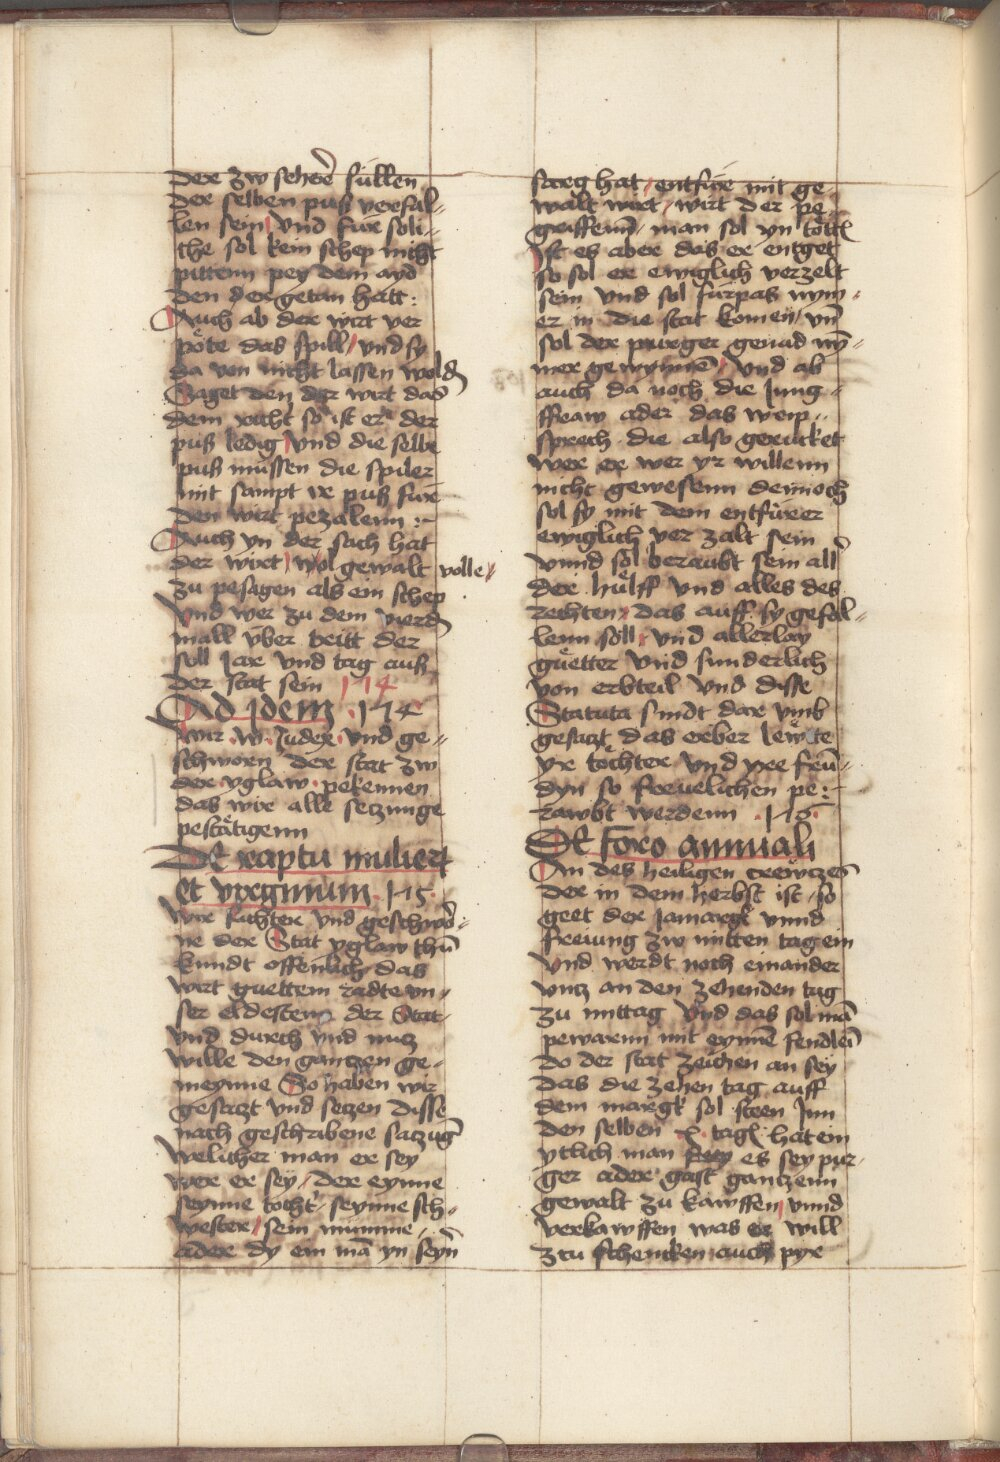 der zw seherē füllen
der selben puß verfal-
len sein und für soli-
che sol kein schep nicht
pittenn pey dem ayd
den der getan hatt:
Auch ab der wirt ver
pöte das spill und sy
da von nicht lassen wold
Saget den der wirt das
dem richt so ist er der
puß ledig und die selbe
puß müssen die spiler
mit sampt ir puß für
den wirt pezalenn :-
Auch yn der sach hat
der wirt wol gewalt volle
zu pesagen als ein schep
Und wer zu dem vierd
mall über tritt der
soll Jar und tag auß
der stat sein 174
Ad idem .174
Wir .w. Judex und ge-
schworn der stat zw
der yglaw pekennen
das wir alle setzunge
pestätigenn
De raptu mulierū
et virginum .175.
Wir Richter und geschwor-
ne der Stat yglaw thū
kundt offenlich das
wirt guettem radte un-
ser eldesten der Stat
und durch und nutz
wille den gantzen ge-
meynne So haben wir
gesatzt und setzen disse
nach geschribene satzūg
welicher man er sey
wer er sey der eynne
seynne tocht seynne sch-
wester sein mümme
ader dy ein mā yn seyn
sarg hat entfüre mit ge-
walt wirt wirt der pe-
griffenn man sol yn tottē
Ist es aber das er entget
so sol er ewiglich verzelt
sein und sol fürpas nym-
er in die stat komen und
sol der purger genad ny-
mer gewynnē und ab
auch da noch die Jung-
ffraw ader das weip
sprech die also gerucket
wer er wer yr willenn
nicht gewesenn dennoch
sol sy mit dem entfürer
ewiglich ver zalt sein
unnd sol beraubt sein all
der hülff und alles des
rechten das auff sy gefal-
lenn söll und allerlay
güetter und sunderlich
von erbteil und disse
Statuta sindt dar umb
gesatzt das erber lewte
yr tochter und yre freü-
dyn so freuelichen pe-
rawbt werdenn .176.
De foro annuali
An des heiligen crewtzes
der in dem herbst ist so
geet der Jamargk unnd
freiung zw mitten tag ein
Und werdt noch einander
untz an den zehenden tag
zu mittag und das sol mā
pewarnn mit eynnē fendlein
do der stat zeichen an sey
das die zehen tag auff
dem margk sol steen Inn
den selben .x. tagē hat ein
ytlich man es sey pur-
ger ader gast gantzenn
gewalt zu kawffen unnd
verkawffen was er will
ztu schencken auch pyr